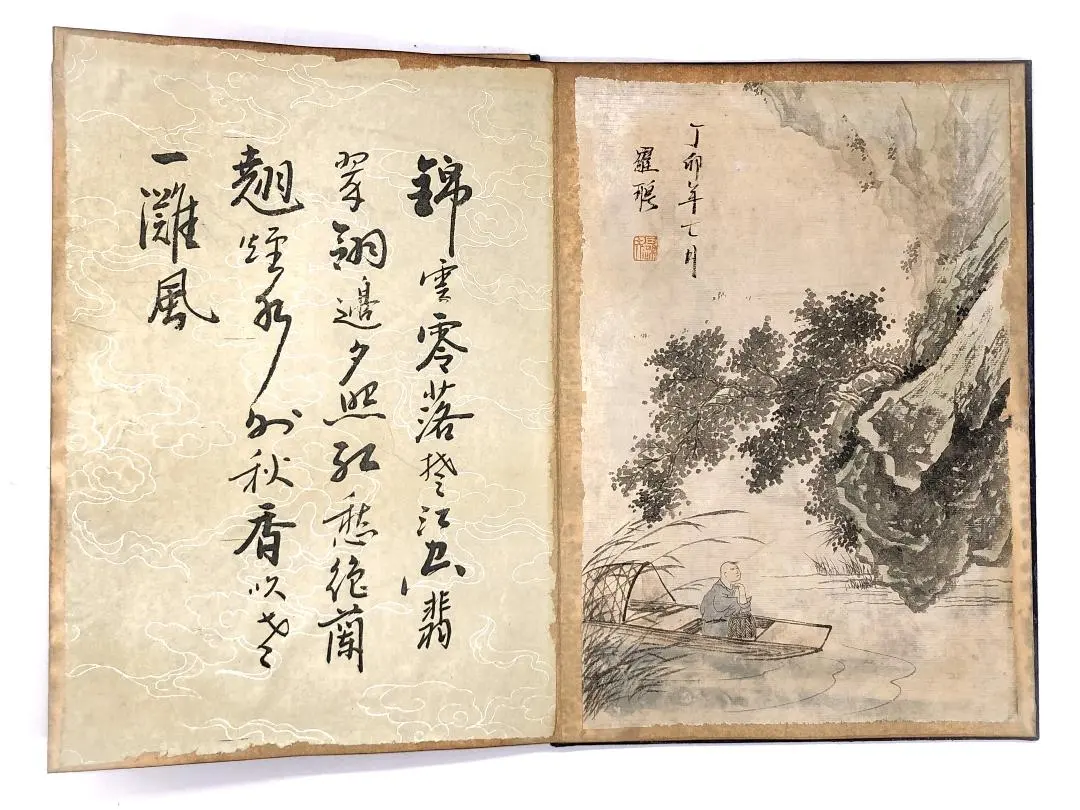 錦雲零落楚江空翡
翠翎邊夕照紅愁絕蘭
翹煙水外秋香吹老
一灘風
丁卯年七月
羅聘